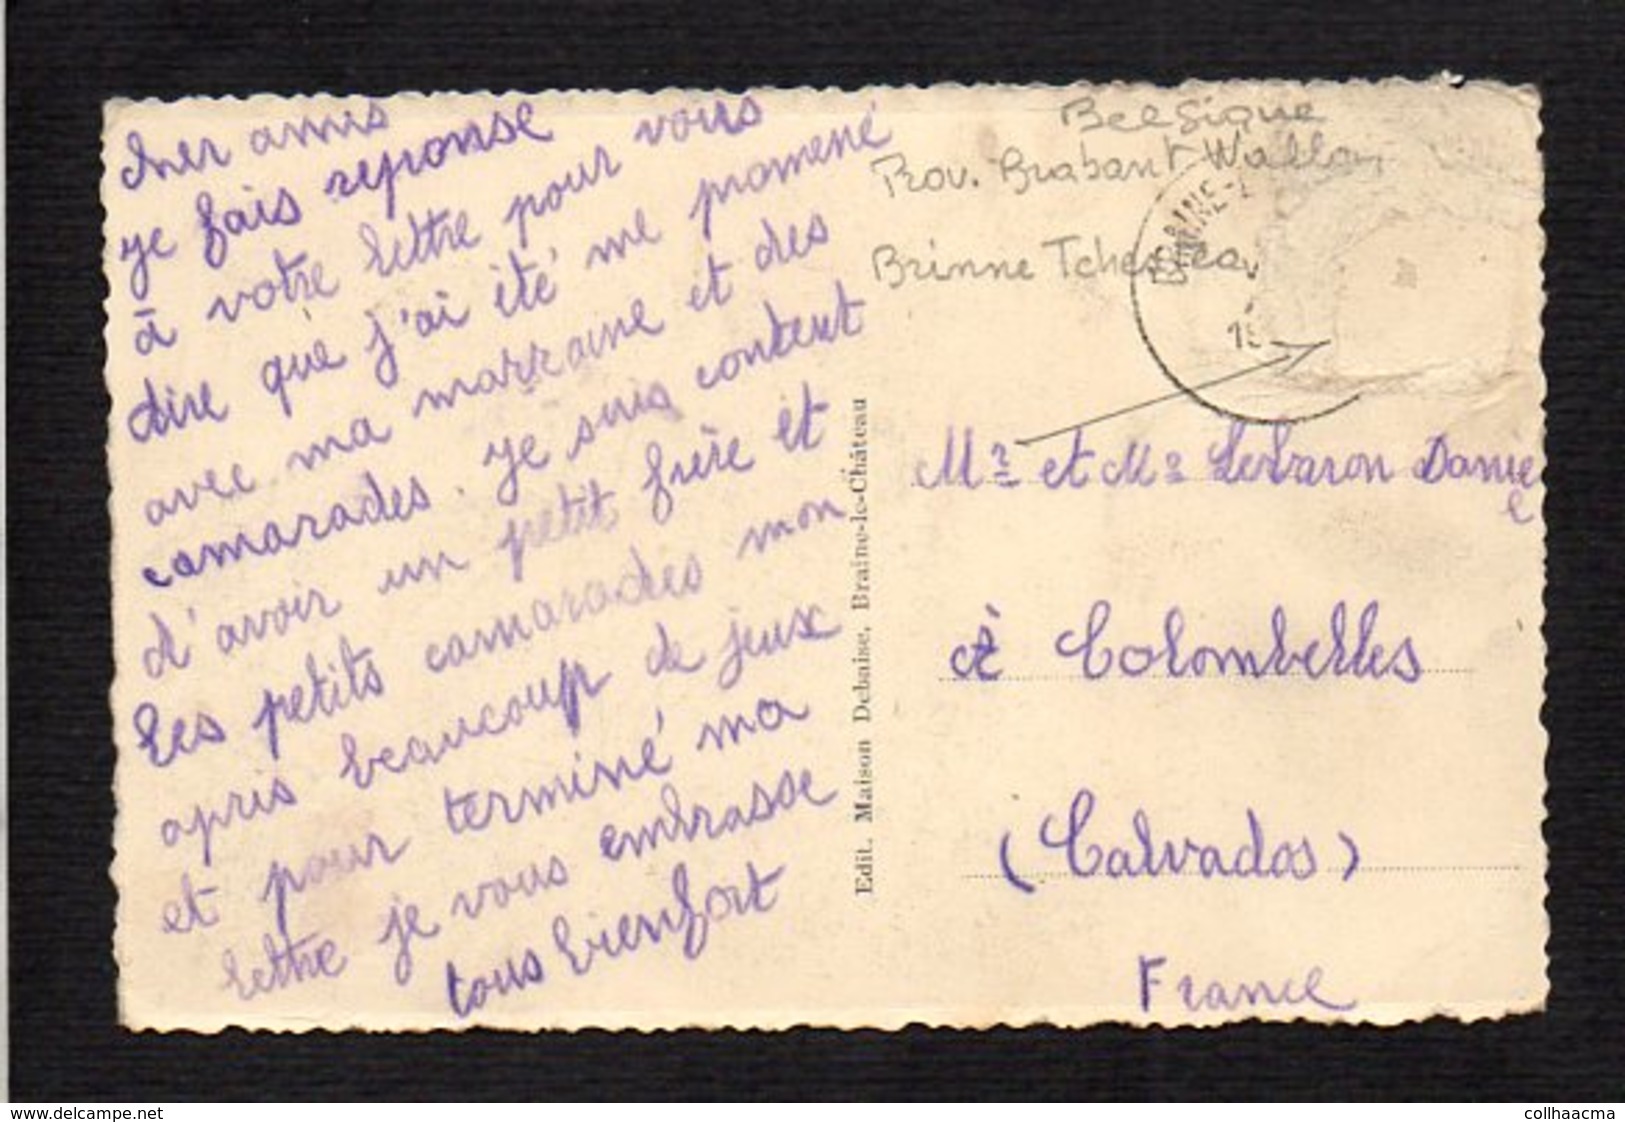 cher amis
je fais reponse
à votre lettre pour vous
dire que j'ai été me promené
avec ma marraine et des
camarades. je suis content
d'avoir un petit frère et
les petits camarades mon
apris beaucoup de jeux
et pour terminé ma
lettre je vous embrasse
tous bienfort
Edit. Maison Debaise, Braine-le-Château
Belgique
Prov. Brabant Wallon
Brinne
BRAINE-L
M? et M? Lebaron Danie
l
à Colombelles
(Calvados)
France
www.delcampe.net
collhaacma